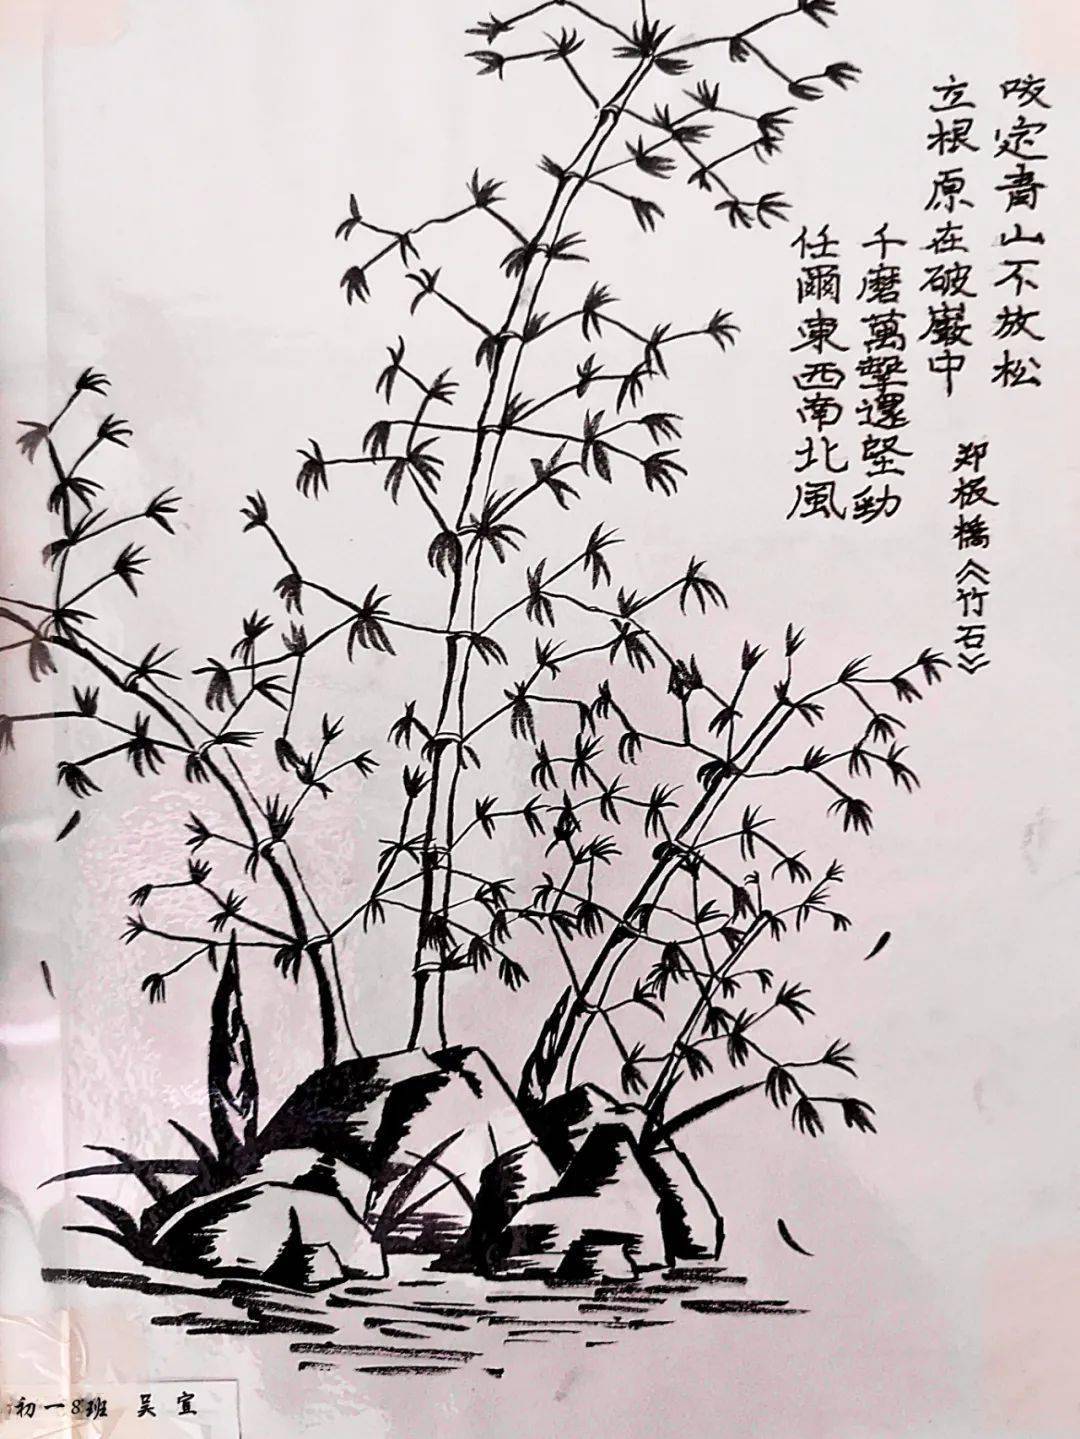 咬定青山不放松
立根原在破巖中
千磨萬擊還堅勁
任爾東西南北風
郑板橋《竹石》
初一8班 吴宣